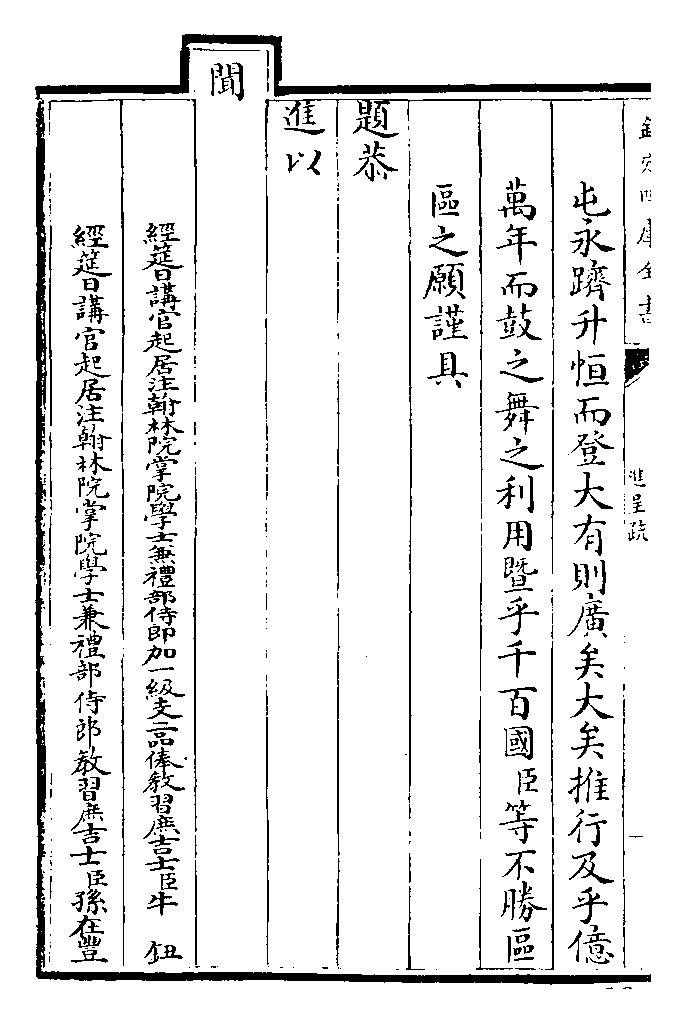 欽定四庫全書
進呈疏
屯永躋升恒而登大有則廣矣大矣推行及乎億
萬年而鼓之舞之利用暨乎千百國臣等不勝區
區之願謹具
題恭
進以
聞
經筵日講官起居注翰林院掌院學士兼禮部侍郎加一級支二品俸教習庶吉士臣牛 鈕
經筵日講官起居注翰林院掌院學士兼禮部侍郎教習庶吉士臣孫在豐